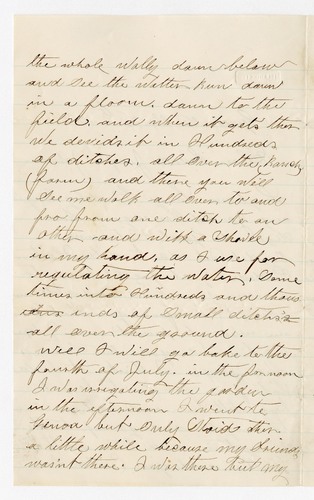 the whole Vally down below
and see the Watter Run down
in a floom. down to the
field. and when it gets ther
We devidet it in Hundreds
of ditches, all over the, Ranch
(farm) and there you Will
See me walk all over to and
fro from one ditch to an
other and With a Shovle
in my hand, as I use for
regulating the Water, Some
times into Hundreds and thous
ends of Small ditch's
all over the ground.
Well I will go bake to the
fourth of July. in the fornoon
I was irrigating the garden
in the afternoon I went to
but only Staid ther
a little while because my friend
wasn't there. I was there but my